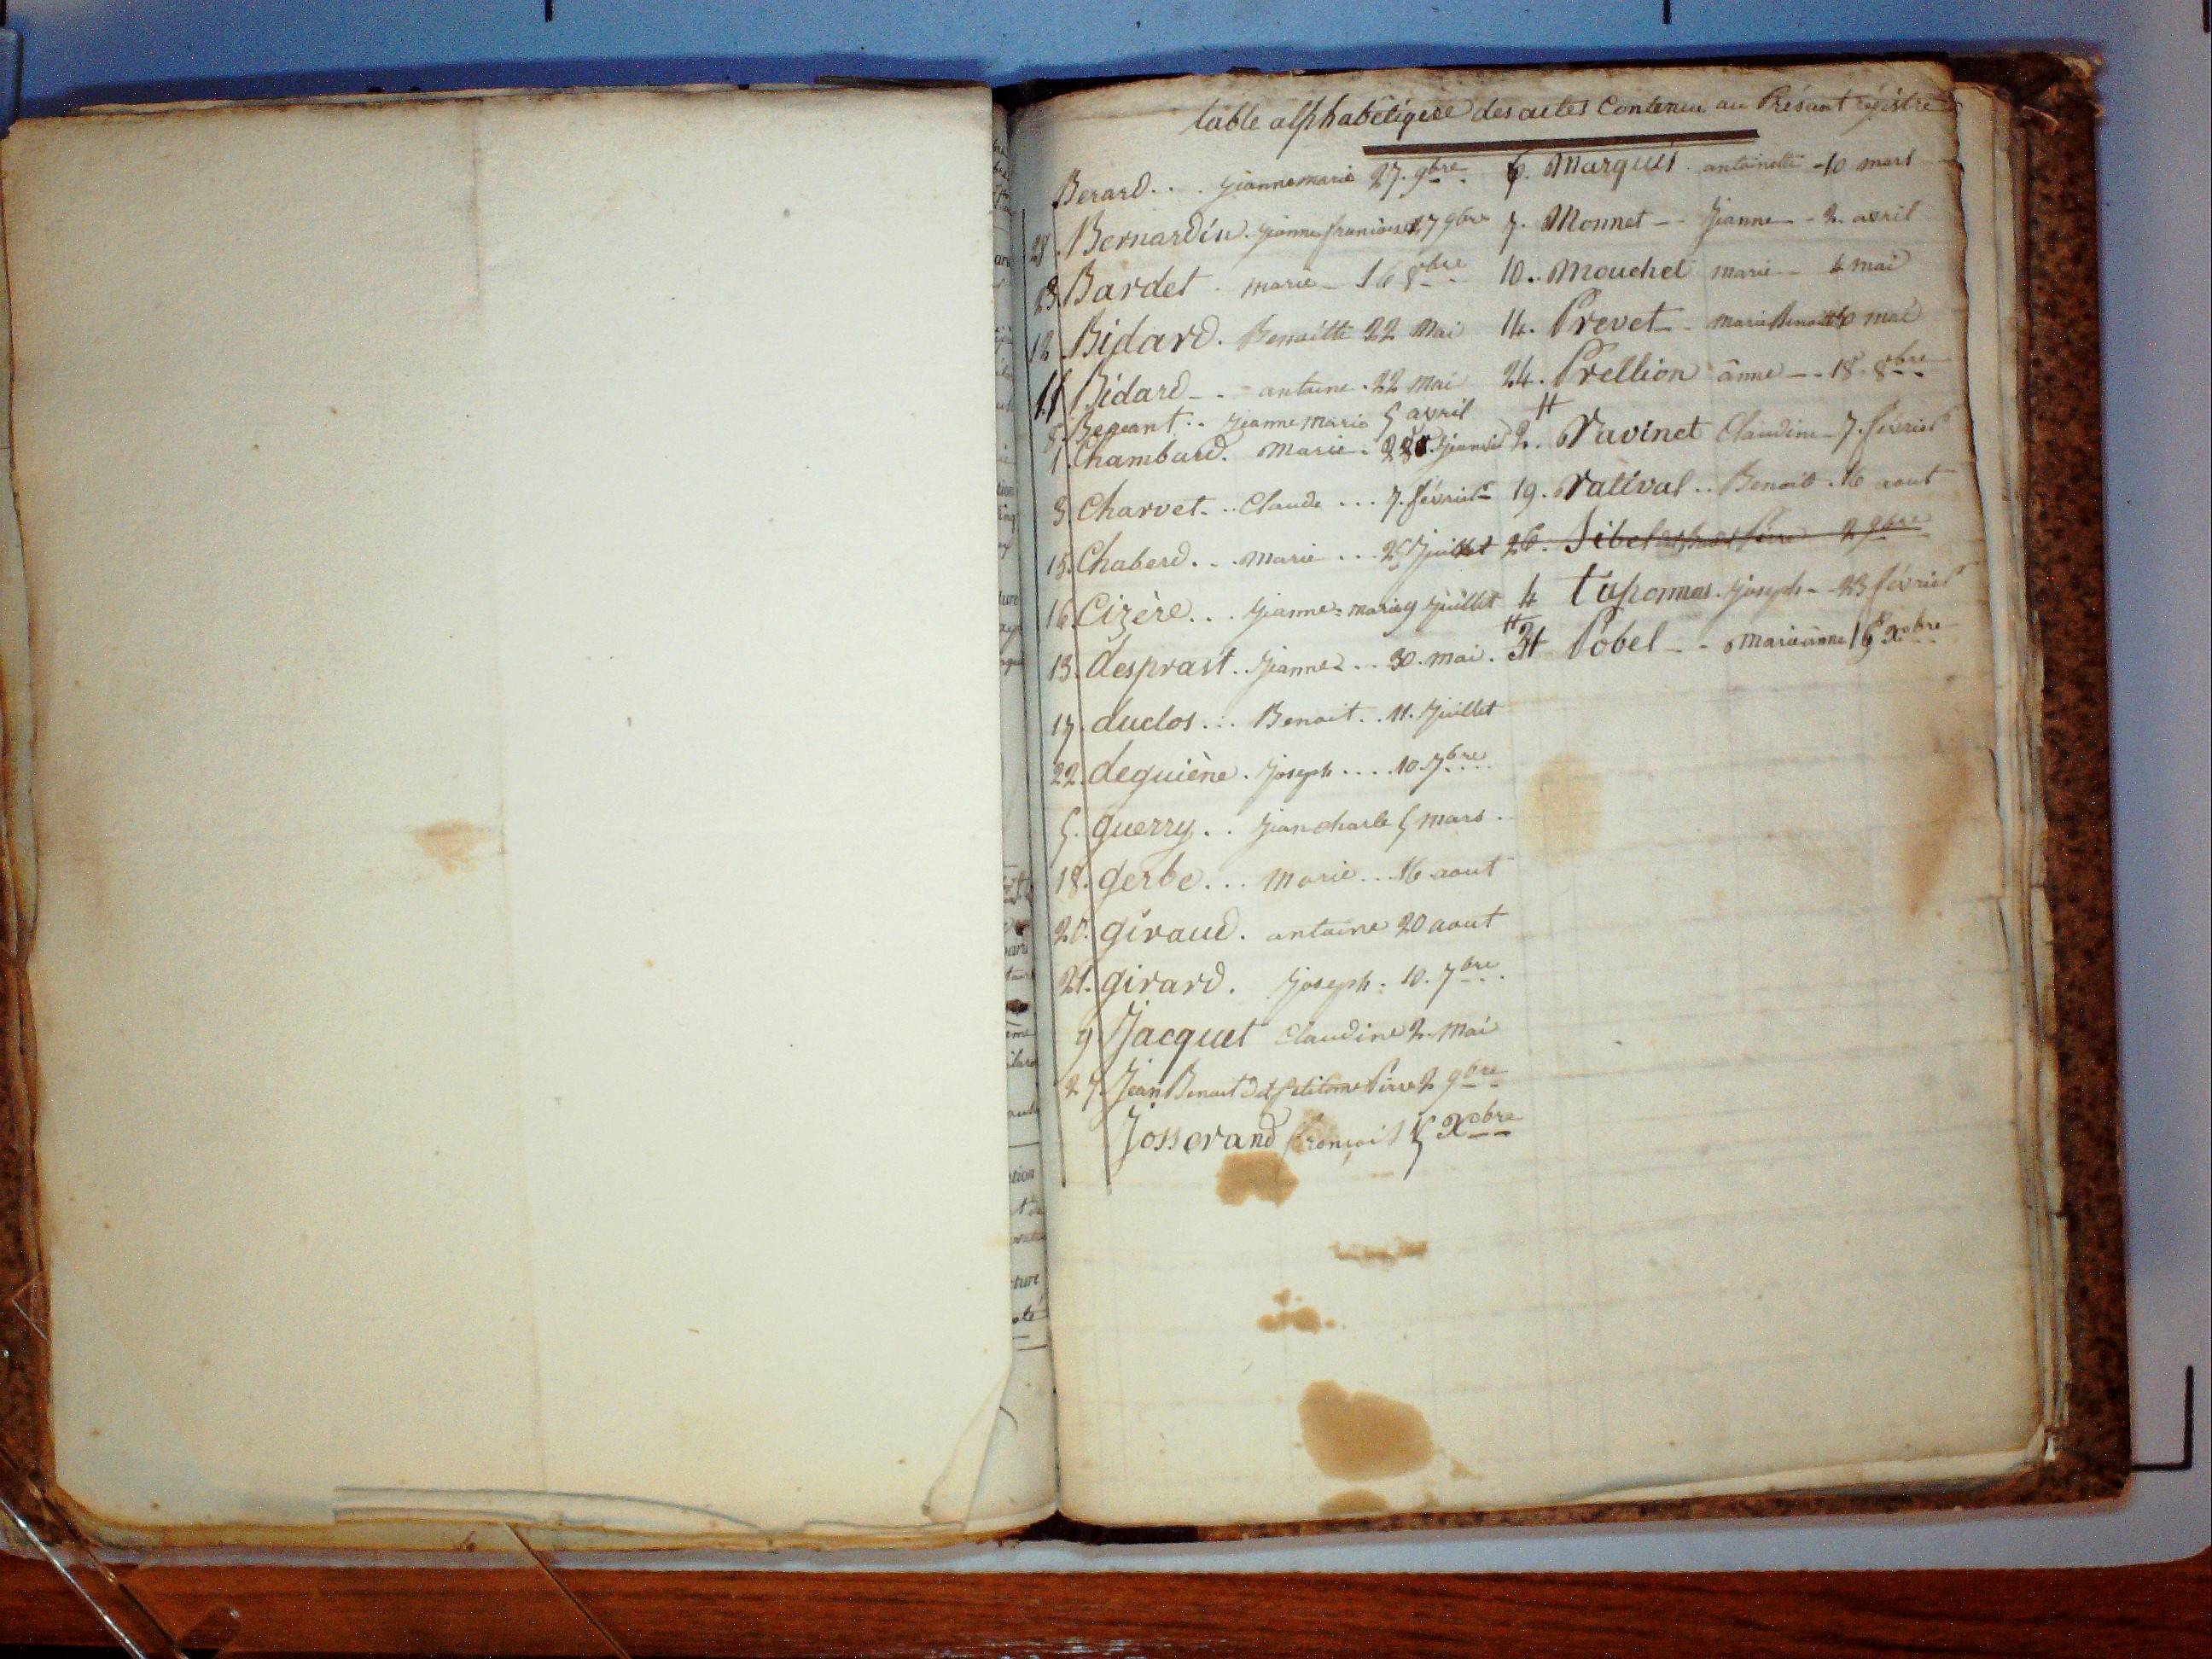 table alphabétique des actes Contenu au Présant régistre
Berard... jeanne marie 27. 9bre
28. Bernardin. jeanne francoise 27 9bre
23 Bardet. marie - 16 8bre
12 Bidard. Benoitte 22 Mai
11 Bidard - - antoine. 22 Mai
8. Begeant.. jeanne marie 5 avril
1. Chambard. Marie. janvier
3. Charvet... Claude... 7. février
15. Chaberd... Marie... Juillet
16. Cizère... jeanne = marie 9 juillet
13. desprast. jeanne... 30. mai.
17. duclos... Benoit.. 11. juillet
22. deguiène. joseph.... 10. 7bre
5. guerry.. jean charle 5 mars.
18. gerbe... Marie... 16 aout
20. giraud. antoine 20 aout
21. girard. joseph. 10. 7bre
9. Jacquet Claudine 2. Mai
27. Jean Benoit dit petitome Pirre 2 9bre
Josserand francois 5 Xbre
6. Marquis antoinette - 10 mars
7. Monnet - - jeanne - 2. avril
10. Mouchet marie - 4 mai
14. Prevet - marie Benoitte mai
24. Prellion ânne - - 18. 8bre
2. Ravinet Claudine 7. février
19. Ratival.. Benoit. 16 aout
26. Sibel Pirre 2 9bre
4 tuponnas. joseph - - 23 février
Pobel - - marie ânne Xbre